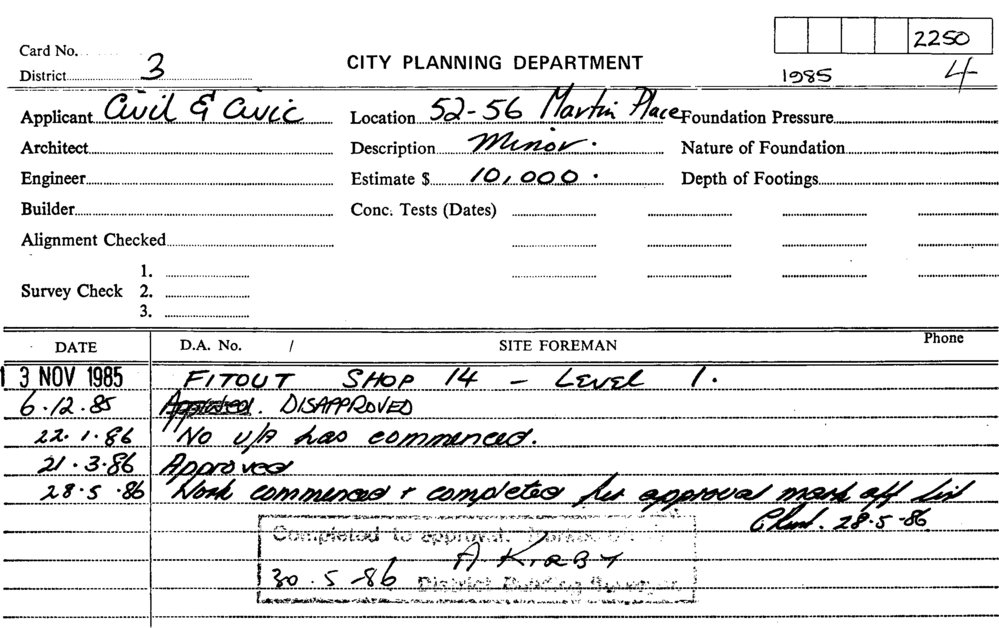 2250
Card No.
CITY PLANNING DEPARTMENT
District 3
1985 4
Applicant Civil & Civic Location 52-56 Martin Place Foundation Pressure
Architect Description Minor. Nature of Foundation
Engineer Estimate $ 10,000. Depth of Footings
Builder Conc. Tests (Dates)
Alignment Checked
1.
Survey Check 2.
3.
DATE D.A. No. / SITE FOREMAN Phone
13 NOV 1985 FITOUT SHOP 14 - LEVEL 1.
6.12.85 Approved. DISAPPROVED
22.1.86 No u/a has commenced.
21.3.86 Approved
28.5.86 Work commenced + completed approval mark off list
28.5.86
Completed to approval.
A KIRBY
30.5.86 District Building Surveyor